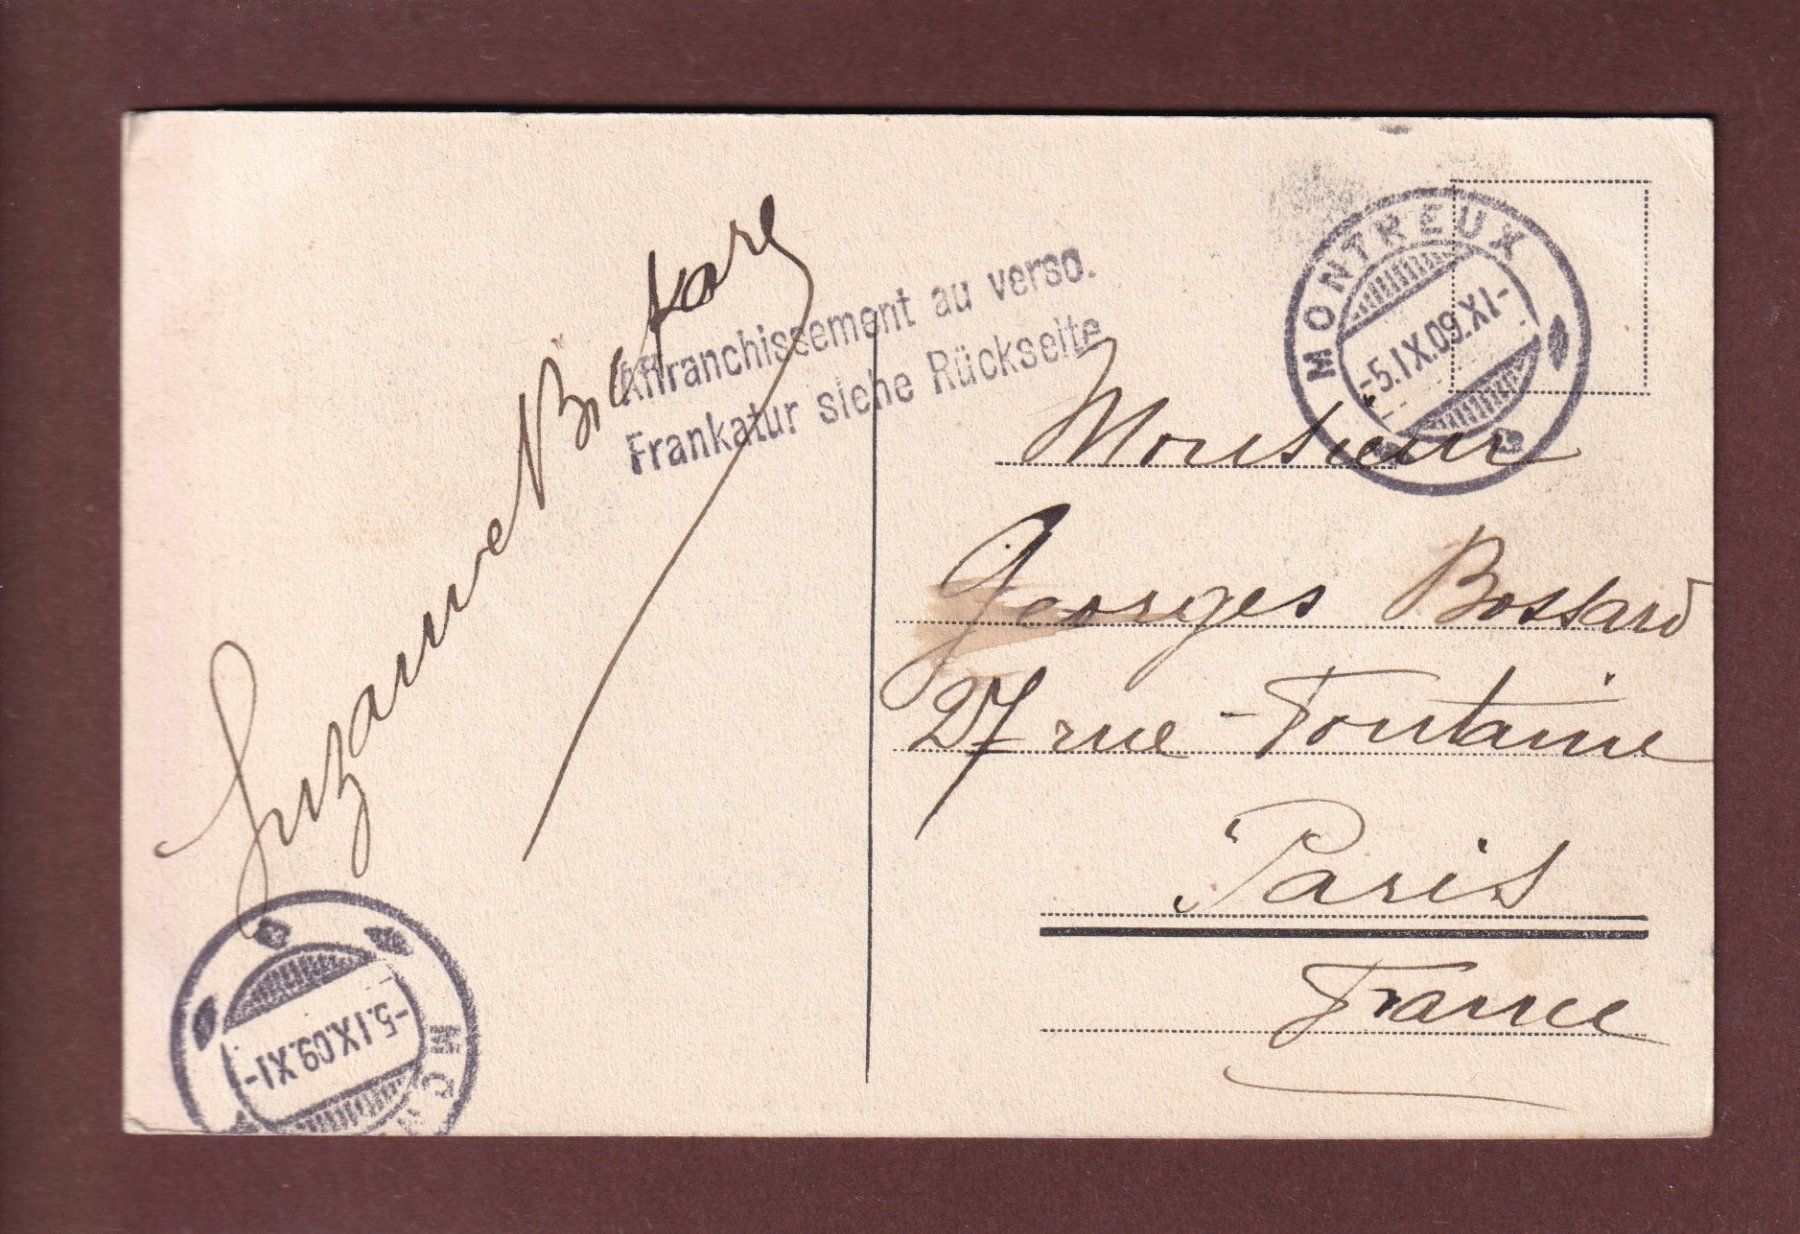 Suzanne
Affranchissement au verso.
Frankatur siehe Rückseite
MONTREUX
-5.IX.09.XI-
Monsieur
Georges Bossard
27 rue Fontaine
Paris
France
-5.IX.09.XI-